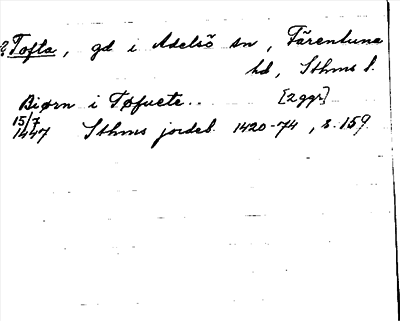 ? Tofta, gd i Adelsö sn, Färentuna
hd, Sthms l.
Biørn i Tøfuete.. [2 ggr]
15/7
1447 Sthms jordeb. 1420-74, s. 159.